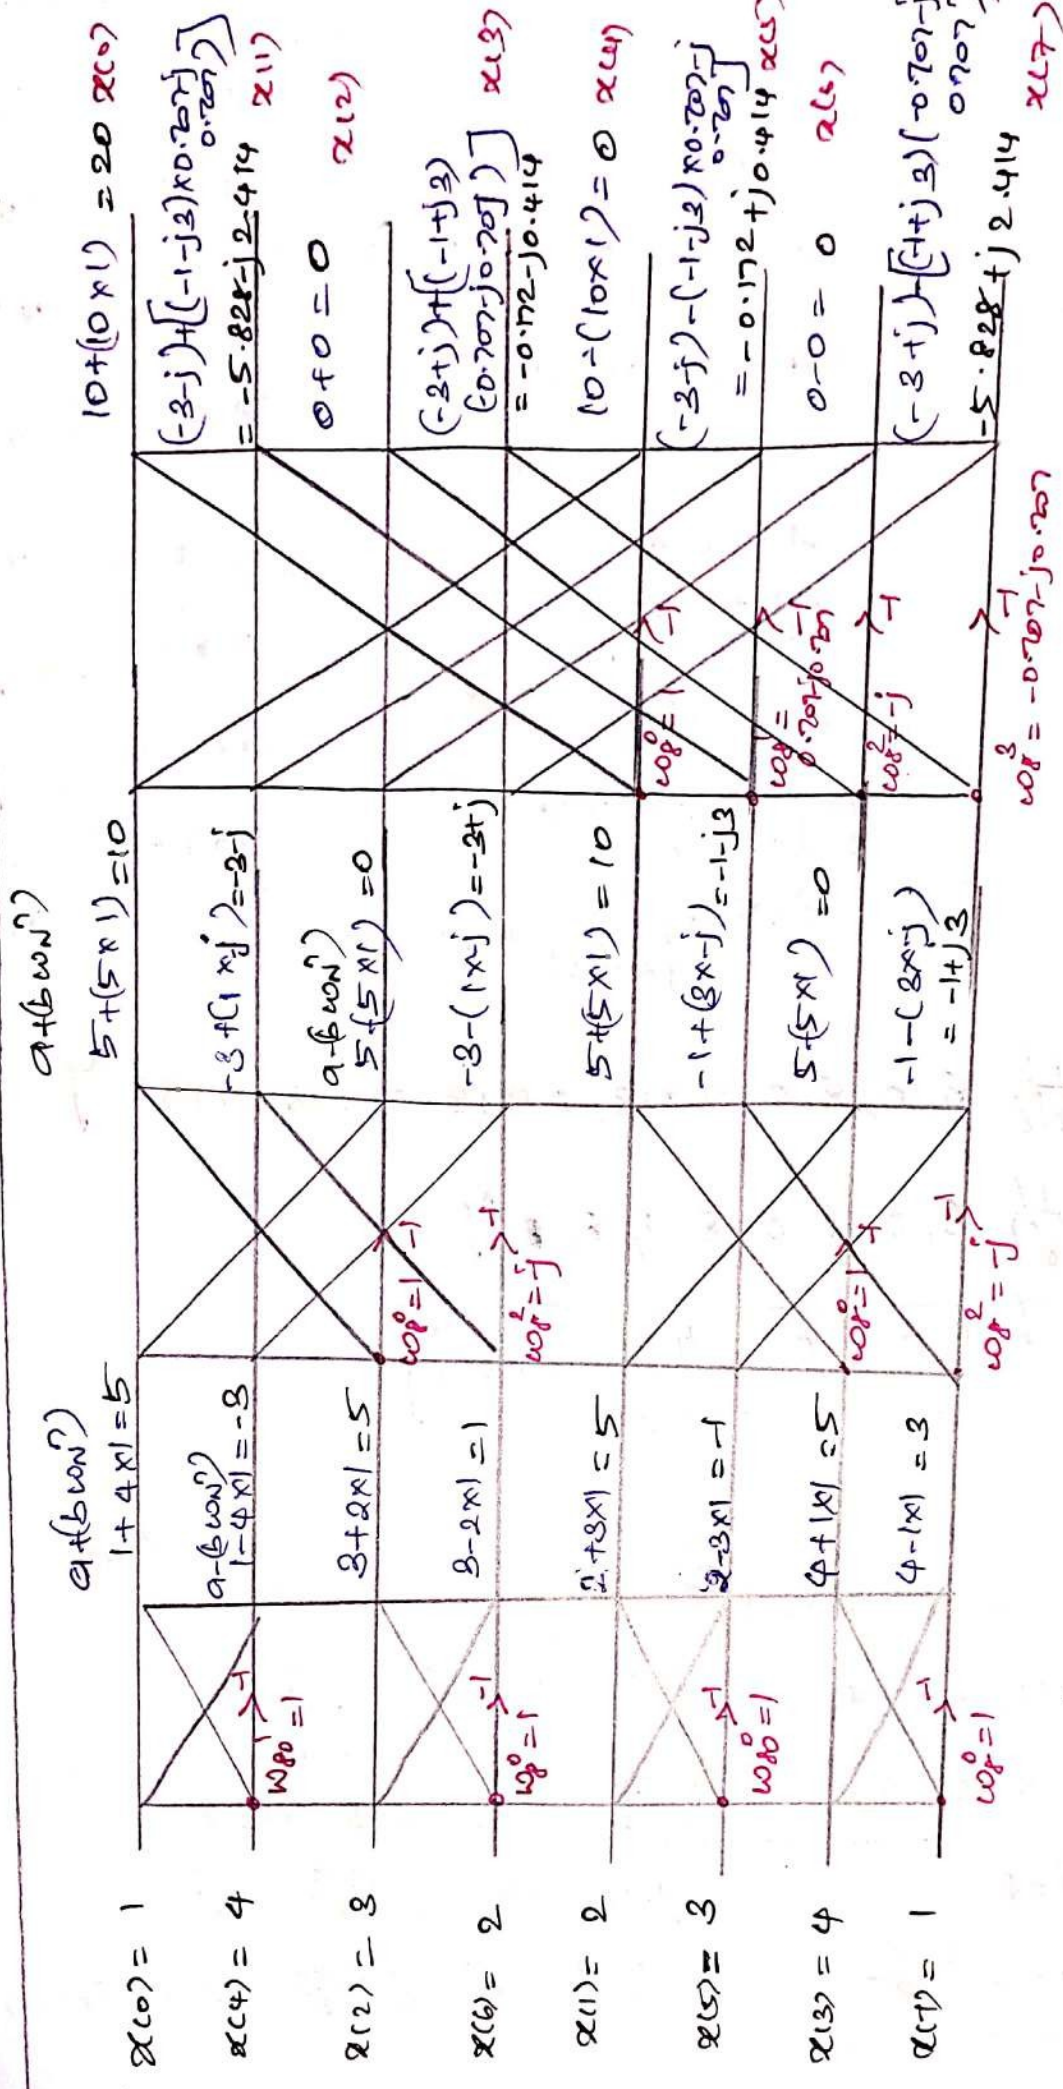 x(0) = 1
x(4) = 4
x(2) = 3
x(6) = 2
x(1) = 2
x(5) = 3
x(3) = 4
x(7) = 1
W80 = 1
-1
W8⁰ = 1
-1
W8⁰ = 1
-1
W8⁰ = 1
-1
a+(b WNⁿ)
1+4×1 = 5
a-(b WNⁿ)
1-4×1 = -3
3+2×1 = 5
3-2×1 = 1
2+3×1 = 5
2-3×1 = -1
4+1×1 = 5
4-1×1 = 3
W8⁰ = 1
-1
W8² = -j
-1
W8⁰ = 1
-1
W8² = -j
-1
a+(b WNⁿ)
5+(5×1) = 10
-3+(1×-j) = -3-j
a-(b WNⁿ)
5-(5×1) = 0
-3-(1×-j) = -3+j
5+(5×1) = 10
-1+(3×-j) = -1-j3
5-(5×1) = 0
-1-(3×-j)
= -1+j3
W8⁰ = 1
-1
W8¹ =
0.707-j0.707
-1
W8² = -j
-1
W8³ = -0.707-j0.707
-1
10+(10×1) = 20 x(0)
(-3-j)+[(-1-j3)×0.707-j
0.707)]
= -5.828-j2.414
x(1)
0+0 = 0
x(2)
(-3+j)+[(-1+j3)
(-0.707-j0.707)]
= -0.172-j0.414
x(3)
10-(10×1) = 0 x(4)
(-3-j)-(-1-j3)×0.707-j
0.707]
= -0.172+j0.414 x(5)
0-0 = 0
(-3+j)-[(-1+j3)(-0.707-j
0.707
-5.828+j2.414
x(7)